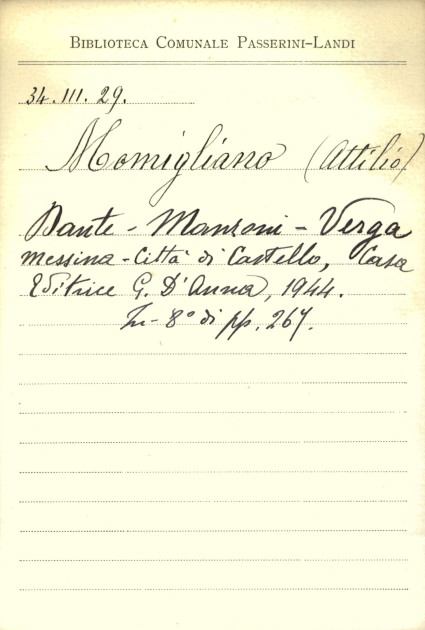 BIBLIOTECA COMUNALE PASSERINI-LANDI
34.III.29.
Momigliano (Attilio)
Dante - Manzoni - Verga
Messina - Città di Castello, Casa
Editrice G. D'Anna, 1944.
In-8° di pp. 267.